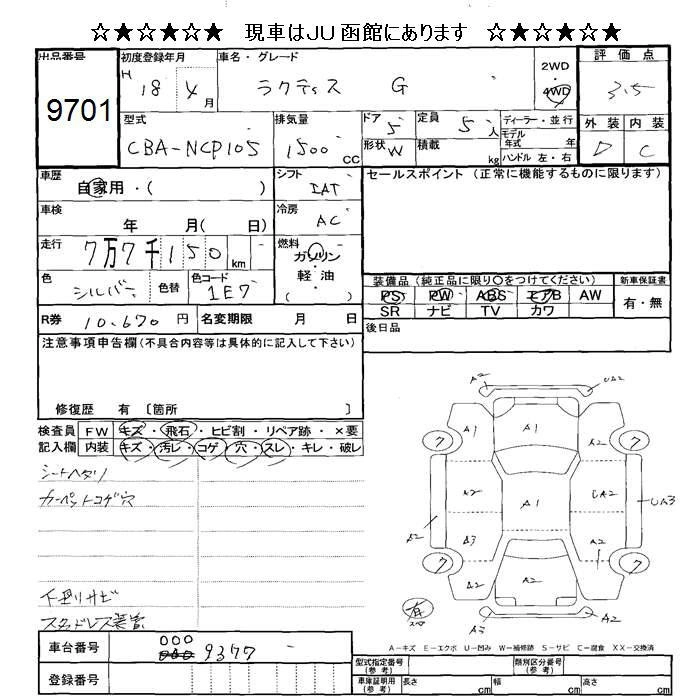 ☆★☆★☆★ 現車はJU函館にあります ☆★☆★☆★
出品番号 9701
初度登録年月 H 18 年 4 月
車名・グレード ラクティス G
2WD 4WD
評価点 3.5
型式 CBA-NCP105
排気量 1500 cc
ドア 5
定員 5 人
ディーラー・並行
外装 D 内装 C
形状 W
積載 kg
モデル年式 年
ハンドル 左・右
車歴 自家用・( )
シフト IAT
セールスポイント (正常に機能するものに限ります)
車検 年 月( 日)
冷房 AC
走行 7万7千150 km
燃料 ガソリン・軽・油 ( )
色 シルバー 色替
色コード 1E7
装備品 (純正品に限り○をつけてください)
新車保証書 有・無
PS PW ABS エアB AW
SR ナビ TV カワ
R券 10.670 円
名変期限 月 日
後日品
注意事項申告欄(不具合内容等は具体的に記入して下さい)
修復歴 有 〔箇所 〕
検査員記入欄
FW キズ・飛石・ヒビ割・リペア跡・×要
内装 キズ・汚レ・コゲ・穴・スレ・キレ・破レ
シートヘタリ
カーペットコゲ穴
下廻りサビ
スタッドレス装着
A2 UA2
A1 A2
7 7
A2 A1 UA2
A2 UA3
A3 A2
7 7
A2 A2
有 スペア
A3 A2
A-キズ E-エクボ U-凹み W-補修跡 S-サビ C-腐食 XX-交換済
車台番号 000 9377
登録番号
型式指定番号(参考)
類別区分番号(参考)
車庫証明用(参考) 長さ cm 幅 cm 高さ cm